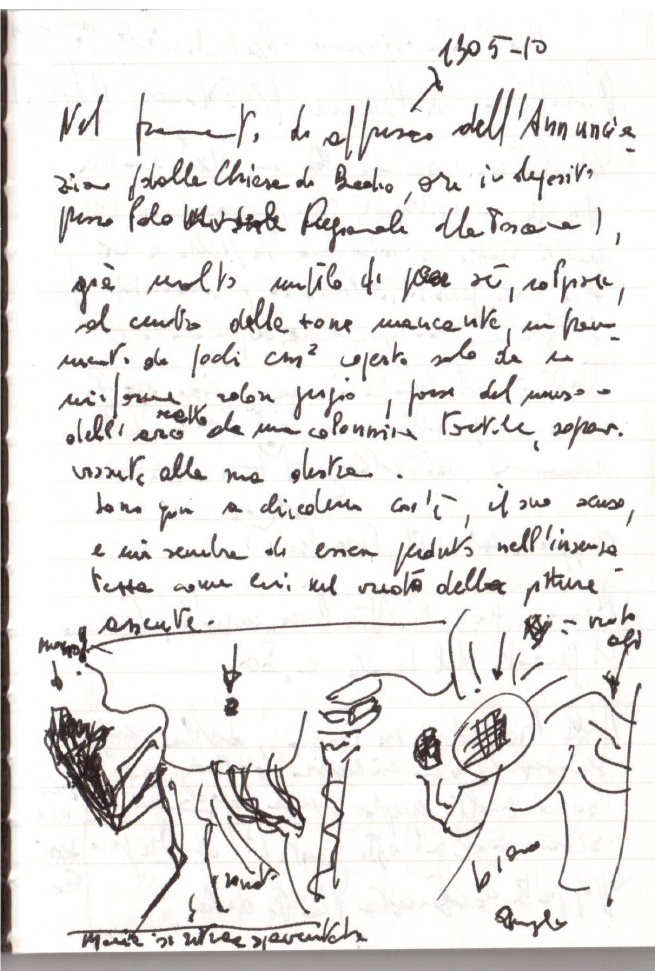 1305-10
Nel frammento di affresco dell'Annuncia-
zione (dalla Chiesa di Badia, ora in deposito
presso Polo Regionale della Toscana),
già molto mutilo di per sé, colpisce,
al centro della zona mancante, un fram-
mento di pochi cm² coperto solo da un
uniforme color grigio, forse del muso
dell'arco retto da una colonnina tortile, soprav-
vissuta alla sua destra.
Sono qui a chiedermi cos'è, il suo senso,
e mi sembra di essermi perduto nell'incer-
tezza come lui nel vuoto della pittura
assente.
= vuoto
vuoto
Maria si ritrae spaventata
Angelo